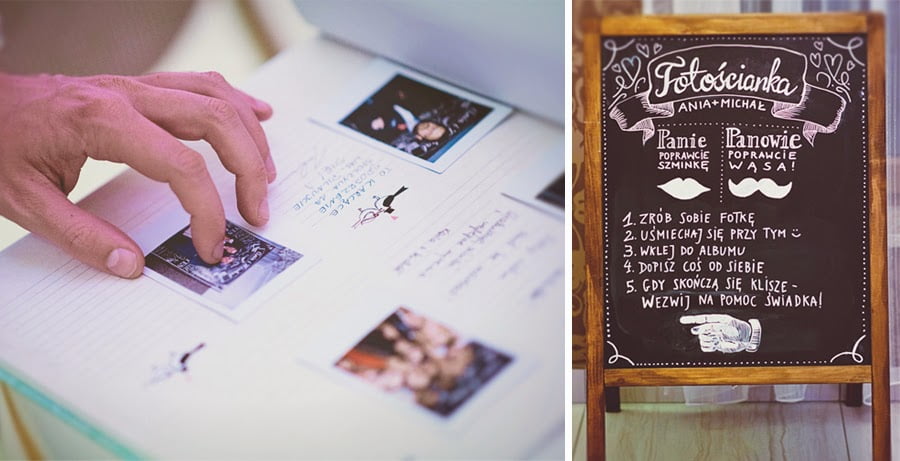 Fotościanka
ANIA+MICHAŁ
Panie
POPRAWCIE
SZMINKĘ
Panowie
POPRAWCIE
WĄSA!
1. ZRÓB SOBIE FOTKĘ
2. UŚMIECHAJ SIĘ PRZY TYM
3. WKLEJ DO ALBUMU
4. DOPISZ COŚ OD SIEBIE
5. GDY SKOŃCZĄ SIĘ KLISZE -
WEZWIJ NA POMOC ŚWIADKA!